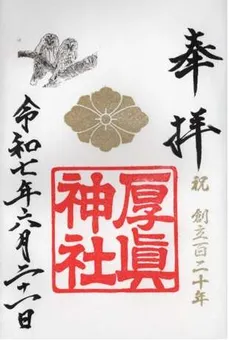 奉拝
祝 創立百二十年
厚真
神社
令和七年六月二十一日